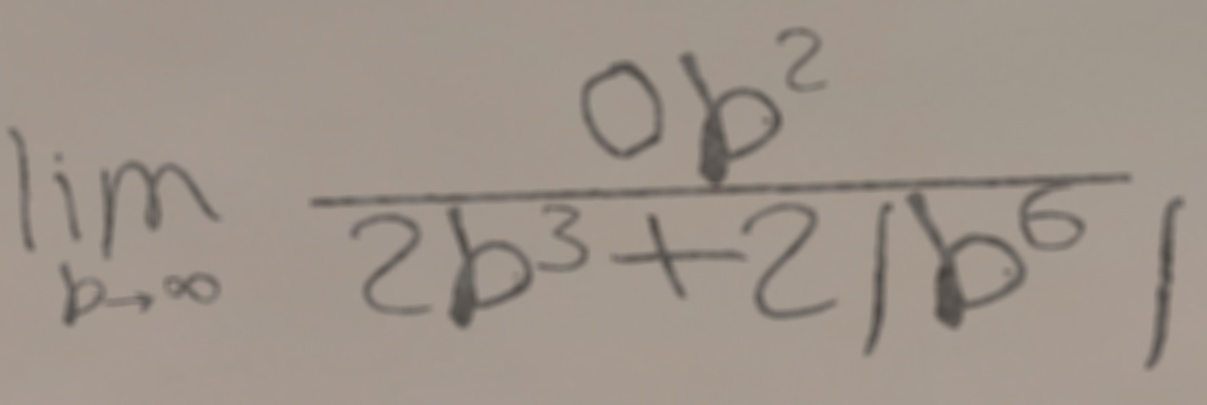 \lim_{b \to \infty} \frac{0b^2}{2b^3+2|b^6|}